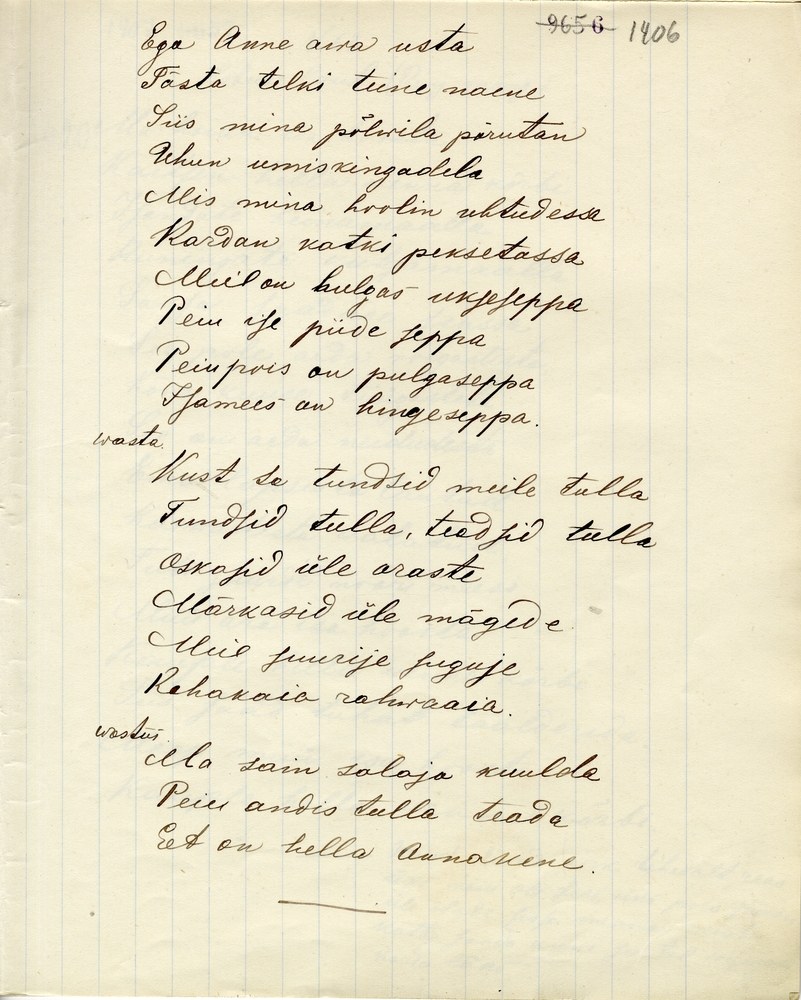 9656 1406
Ega Anne awa usta
Tõsta telki teine naene
Siis mina põlwila põrutan
Uhun umiskingadela
Mis mina hoolin uhtudessa
Kardan katki peksetassa
Meil on hulgas ukseseppa
Peiu ise piide seppa
Peiupois on pulgaseppa
Isamees on hingeseppa.
wasta.
Kust sa tundsid meile tulla
Tundsid tulla, teadsid tulla
Oskasid üle araste
Märkasid üle mägede
Meie suurije suguje
Rahwaaia.
wastus
Ma sain salaja kuulda
Peiu andis tulla teada
Et on hella Annakene.